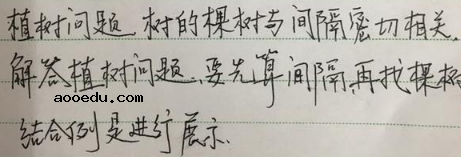 植树问题 树的棵树与间隔密切相关.
解答植树问题.要先算间隔,再找棵树
aooedu.com
结合例是进行展示.